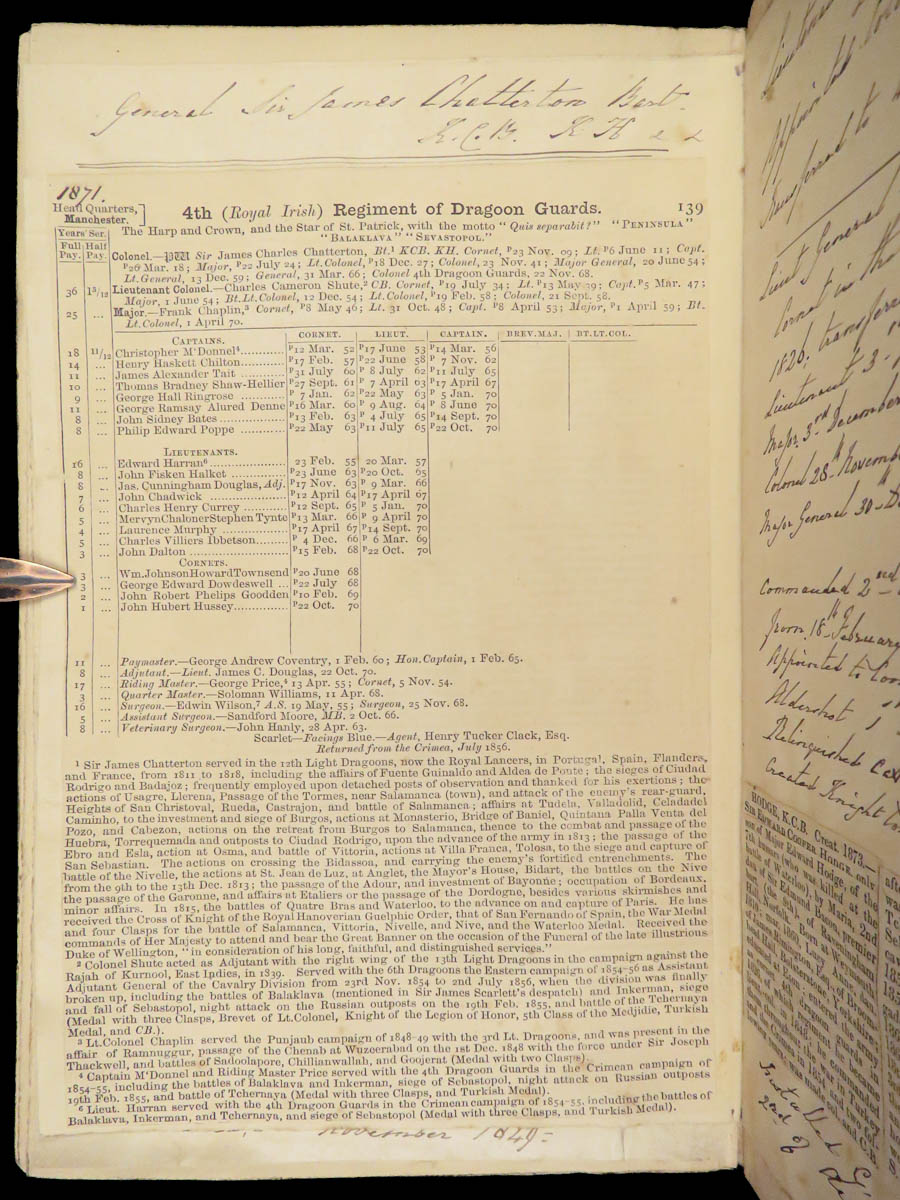 General Sir James Chatterton Bart.
K.C.B. K H
1871.
Head Quarters,
Manchester.
4th (Royal Irish) Regiment of Dragoon Guards.
139
The Harp and Crown, and the Star of St. Patrick, with the motto "Quis separabit?" "PENINSULA"
"BALAKLAVA" "SEVASTOPOL."
Years' Ser.
Full Pay. Half Pay.
Colonel.—Sir James Charles Chatterton, Bt.¹ KCB. KH. Cornet, ᴾ23 Nov. 09; Lt. ᴾ6 June 11; Capt.
ᴾ26 Mar. 18; Major, ᴾ22 July 24; Lt.Colonel, ᴾ18 Dec. 27; Colonel, 23 Nov. 41; Major General, 20 June 54;
Lt.General, 13 Dec. 59; General, 31 Mar. 66; Colonel 4th Dragoon Guards, 22 Nov. 68.
36 Lieutenant Colonel.—Charles Cameron Shute,² CB. Cornet, ᴾ19 July 34; Lt. ᴾ13 May 39; Capt. ᴾ5 Mar. 47;
Major, 1 June 54; Bt.Lt.Colonel, 12 Dec. 54; Lt.Colonel, ᴾ19 Feb. 58; Colonel, 21 Sept. 58.
25 ... Major.—Frank Chaplin,³ Cornet, ᴾ8 May 46; Lt. 31 Oct. 48; Capt. ᴾ8 April 53; Major, ᴾ1 April 59; Bt.
Lt.Colonel, 1 April 70.
CAPTAINS. CORNET. LIEUT. CAPTAIN. BREV.MAJ. BT.LT.COL.
18 11/12 Christopher M'Donnel⁴ ............ ᴾ12 Mar. 52 ᴾ17 June 53 ᴾ14 Mar. 56
14 ... Henry Haskett Chilton............ ᴾ17 Feb. 57 ᴾ22 June 58 ᴾ 7 Nov. 62
11 ... James Alexander Tait ............ ᴾ31 July 60 ᴾ 8 July 62 ᴾ11 July 65
10 ... Thomas Bradney Shaw-Hellier ᴾ27 Sept. 61 ᴾ 7 April 63 ᴾ17 April 67
9 ... George Hall Ringrose ............ ᴾ 7 Jan. 62 ᴾ22 May 63 ᴾ 5 Jan. 70
11 ... George Ramsay Alured Denne ᴾ16 Mar. 60 ᴾ 9 Aug. 64 ᴾ 8 June 70
8 ... John Sidney Bates ............... ᴾ13 Feb. 63 ᴾ 4 July 65 ᴾ14 Sept. 70
8 ... Philip Edward Poppe ............ ᴾ22 May 63 ᴾ11 July 65 ᴾ22 Oct. 70
LIEUTENANTS.
16 ... Edward Harran⁶ ..................... 23 Feb. 55 20 Mar. 57
8 ... John Fisken Halket ............... ᴾ23 June 63 ᴾ20 Oct. 65
8 ... Jas. Cunningham Douglas, Adj. ᴾ17 Nov. 63 ᴾ 9 Mar. 66
7 ... John Chadwick ..................... ᴾ12 April 64 ᴾ17 April 67
6 ... Charles Henry Currey ............ ᴾ12 Sept. 65 ᴾ 5 Jan. 70
5 ... MervynChalonerStephen Tynte ᴾ13 Mar. 66 ᴾ 9 April 70
4 ... Laurence Murphy .................. ᴾ17 April 67 ᴾ14 Sept. 70
5 ... Charles Villiers Ibbetson......... ᴾ 4 Dec. 66 ᴾ 6 Mar. 69
3 ... John Dalton ........................ ᴾ15 Feb. 68 ᴾ22 Oct. 70
CORNETS.
3 ... Wm.JohnsonHowardTownsend ᴾ20 June 68
3 ... George Edward Dowdeswell ... ᴾ22 July 68
2 ... John Robert Phelips Goodden ᴾ10 Feb. 69
1 ... John Hubert Hussey............... ᴾ22 Oct. 70
11 ... Paymaster.—George Andrew Coventry, 1 Feb. 60; Hon.Captain, 1 Feb. 65.
8 ... Adjutant.—Lieut. James C. Douglas, 22 Oct. 70.
17 ... Riding Master.—George Price,⁴ 13 Apr. 55; Cornet, 5 Nov. 54.
3 ... Quarter Master.—Soloman Williams, 11 Apr. 68.
16 ... Surgeon.—Edwin Wilson,⁷ A.S. 19 May, 55; Surgeon, 25 Nov. 68.
5 ... Assistant Surgeon.—Sandford Moore, MB. 2 Oct. 66.
8 ... Veterinary Surgeon.—John Hanly, 28 Apr. 63.
Scarlet—Facings Blue.—Agent, Henry Tucker Clack, Esq.
Returned from the Crimea, July 1856.
1 Sir James Chatterton served in the 12th Light Dragoons, now the Royal Lancers, in Portugal, Spain, Flanders,
and France, from 1811 to 1818, including the affairs of Fuente Guinaldo and Aldea de Ponte; the sieges of Ciudad
Rodrigo and Badajoz; frequently employed upon detached posts of observation and thanked for his exertions; the
actions of Usagre, Llerena, Passage of the Tormes, near Salamanca (town), and attack of the enemy's rear-guard,
Heights of San Christoval, Rueda, Castrajon, and battle of Salamanca; affairs at Tudela, Valladolid, Celadadel
Caminho, to the investment and siege of Burgos, actions at Monasterio, Bridge of Baniel, Quintana Palla Venta del
Pozo, and Cabezon, actions on the retreat from Burgos to Salamanca, thence to the combat and passage of the
Huebra, Torrequemada and outposts to Ciudad Rodrigo, upon the advance of the army in 1813; the passage of the
Ebro and Esla, action at Osma, and battle of Vittoria, actions at Villa Franca, Tolosa, to the siege and capture of
San Sebastian. The actions on crossing the Bidassoa, and carrying the enemy's fortified entrenchments. The
battle of the Nivelle, the actions at St. Jean de Luz, at Anglet, the Mayor's House, Bidart, the battles on the Nive
from the 9th to the 13th Dec. 1813; the passage of the Adour, and investment of Bayonne; occupation of Bordeaux,
the passage of the Garonne, and affairs at Etaliers or the passage of the Dordogne, besides various skirmishes and
minor affairs. In 1815, the battles of Quatre Bras and Waterloo, to the advance on and capture of Paris. He has
received the Cross of Knight of the Royal Hanoverian Guelphic Order, that of San Fernando of Spain, the War Medal
and four Clasps for the battle of Salamanca, Vittoria, Nivelle, and Nive, and the Waterloo Medal. Received the
commands of Her Majesty to attend and bear the Great Banner on the occasion of the Funeral of the late illustrious
Duke of Wellington, "in consideration of his long, faithful, and distinguished services."
2 Colonel Shute acted as Adjutant with the right wing of the 13th Light Dragoons in the campaign against the
Rajah of Kurnool, East Indies, in 1839. Served with the 6th Dragoons the Eastern campaign of 1854-56 as Assistant
Adjutant General of the Cavalry Division from 23rd Nov. 1854 to 2nd July 1856, when the division was finally
broken up, including the battles of Balaklava (mentioned in Sir James Scarlett's despatch) and Inkerman, siege
and fall of Sebastopol, night attack on the Russian outposts on the 19th Feb. 1855, and battle of the Tchernaya
(Medal with three Clasps, Brevet of Lt.Colonel, Knight of the Legion of Honor, 5th Class of the Medjidie, Turkish
Medal, and CB.).
3 Lt.Colonel Chaplin served the Punjaub campaign of 1848-49 with the 3rd Lt. Dragoons, and was present in the
affair of Ramnuggur, passage of the Chenab at Wuzeerabad on the 1st Dec. 1848 with the force under Sir Joseph
Thackwell, and battles of Sadoolapore, Chillianwallah, and Goojerat (Medal with two Clasps).
4 Captain M'Donnel and Riding Master Price served with the 4th Dragoon Guards in the Crimean campaign of
1854-55, including the battles of Balaklava and Inkerman, siege of Sebastopol, night attack on Russian outposts
19th Feb. 1855, and battle of Tchernaya (Medal with three Clasps, and Turkish Medal).
6 Lieut. Harran served with the 4th Dragoon Guards in the Crimean campaign of 1854-55, including the battles of
Balaklava, Inkerman, and Tchernaya, and siege of Sebastopol (Medal with three Clasps, and Turkish Medal).
November 1849
Lieut General
Cornet in the
1820, transferred
Lieutenant 3
Major 3rd December
Colonel 28th November
Major General 30th
Commanded 2nd
from 18th February
Appointed to
Aldershot
Relinquished
Created Knight
HODGE, K.C.B. Creat. 1873.
SIR EDWARD COOPER HODGE, only
son of Major Edward Hodge, of the
7th hussars (who was killed at the
Installed
2nd of